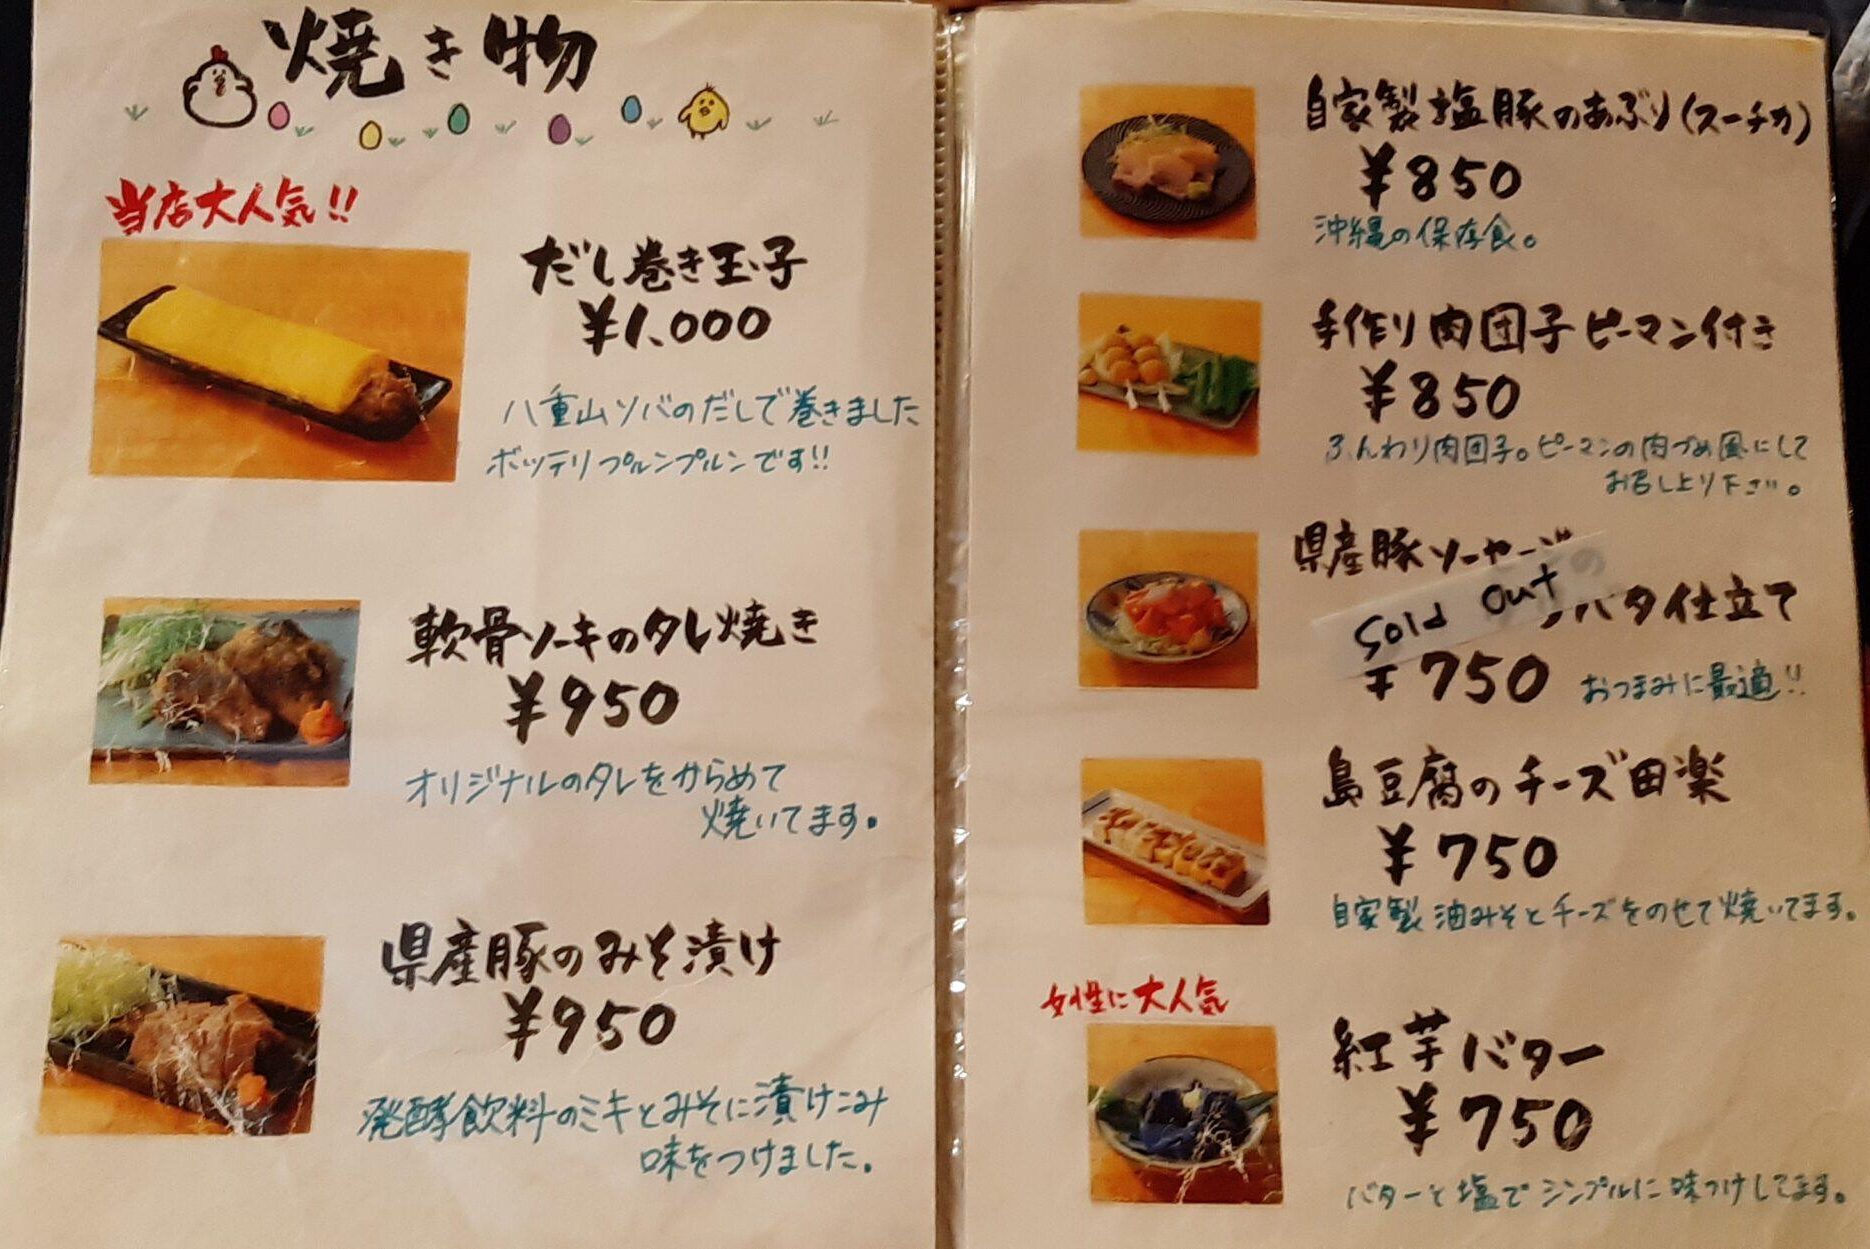 焼き物
当店大人気!!
だし巻き玉子
¥1,000
八重山ソバのだしで巻きました
ボッテリプルンプルンです!!
軟骨ソーキのタレ焼き
¥950
オリジナルのタレをからめて
焼いてます。
県産豚のみそ漬け
¥950
発酵飲料のミキとみそに漬けこみ
味をつけました。
自家製塩豚のあぶり(スーチカ)
¥850
沖縄の保存食。
手作り肉団子ピーマン付き
¥850
ふんわり肉団子。ピーマンの肉づめ風にして
お召し上り下さい。
県産豚ソーセージの
Sold Out
バタ仕立て
¥750
おつまみに最適!!
島豆腐のチーズ田楽
¥750
自家製油みそとチーズをのせて焼いてます。
女性に大人気
紅芋バター
¥750
バターと塩でシンプルに味つけしてます。